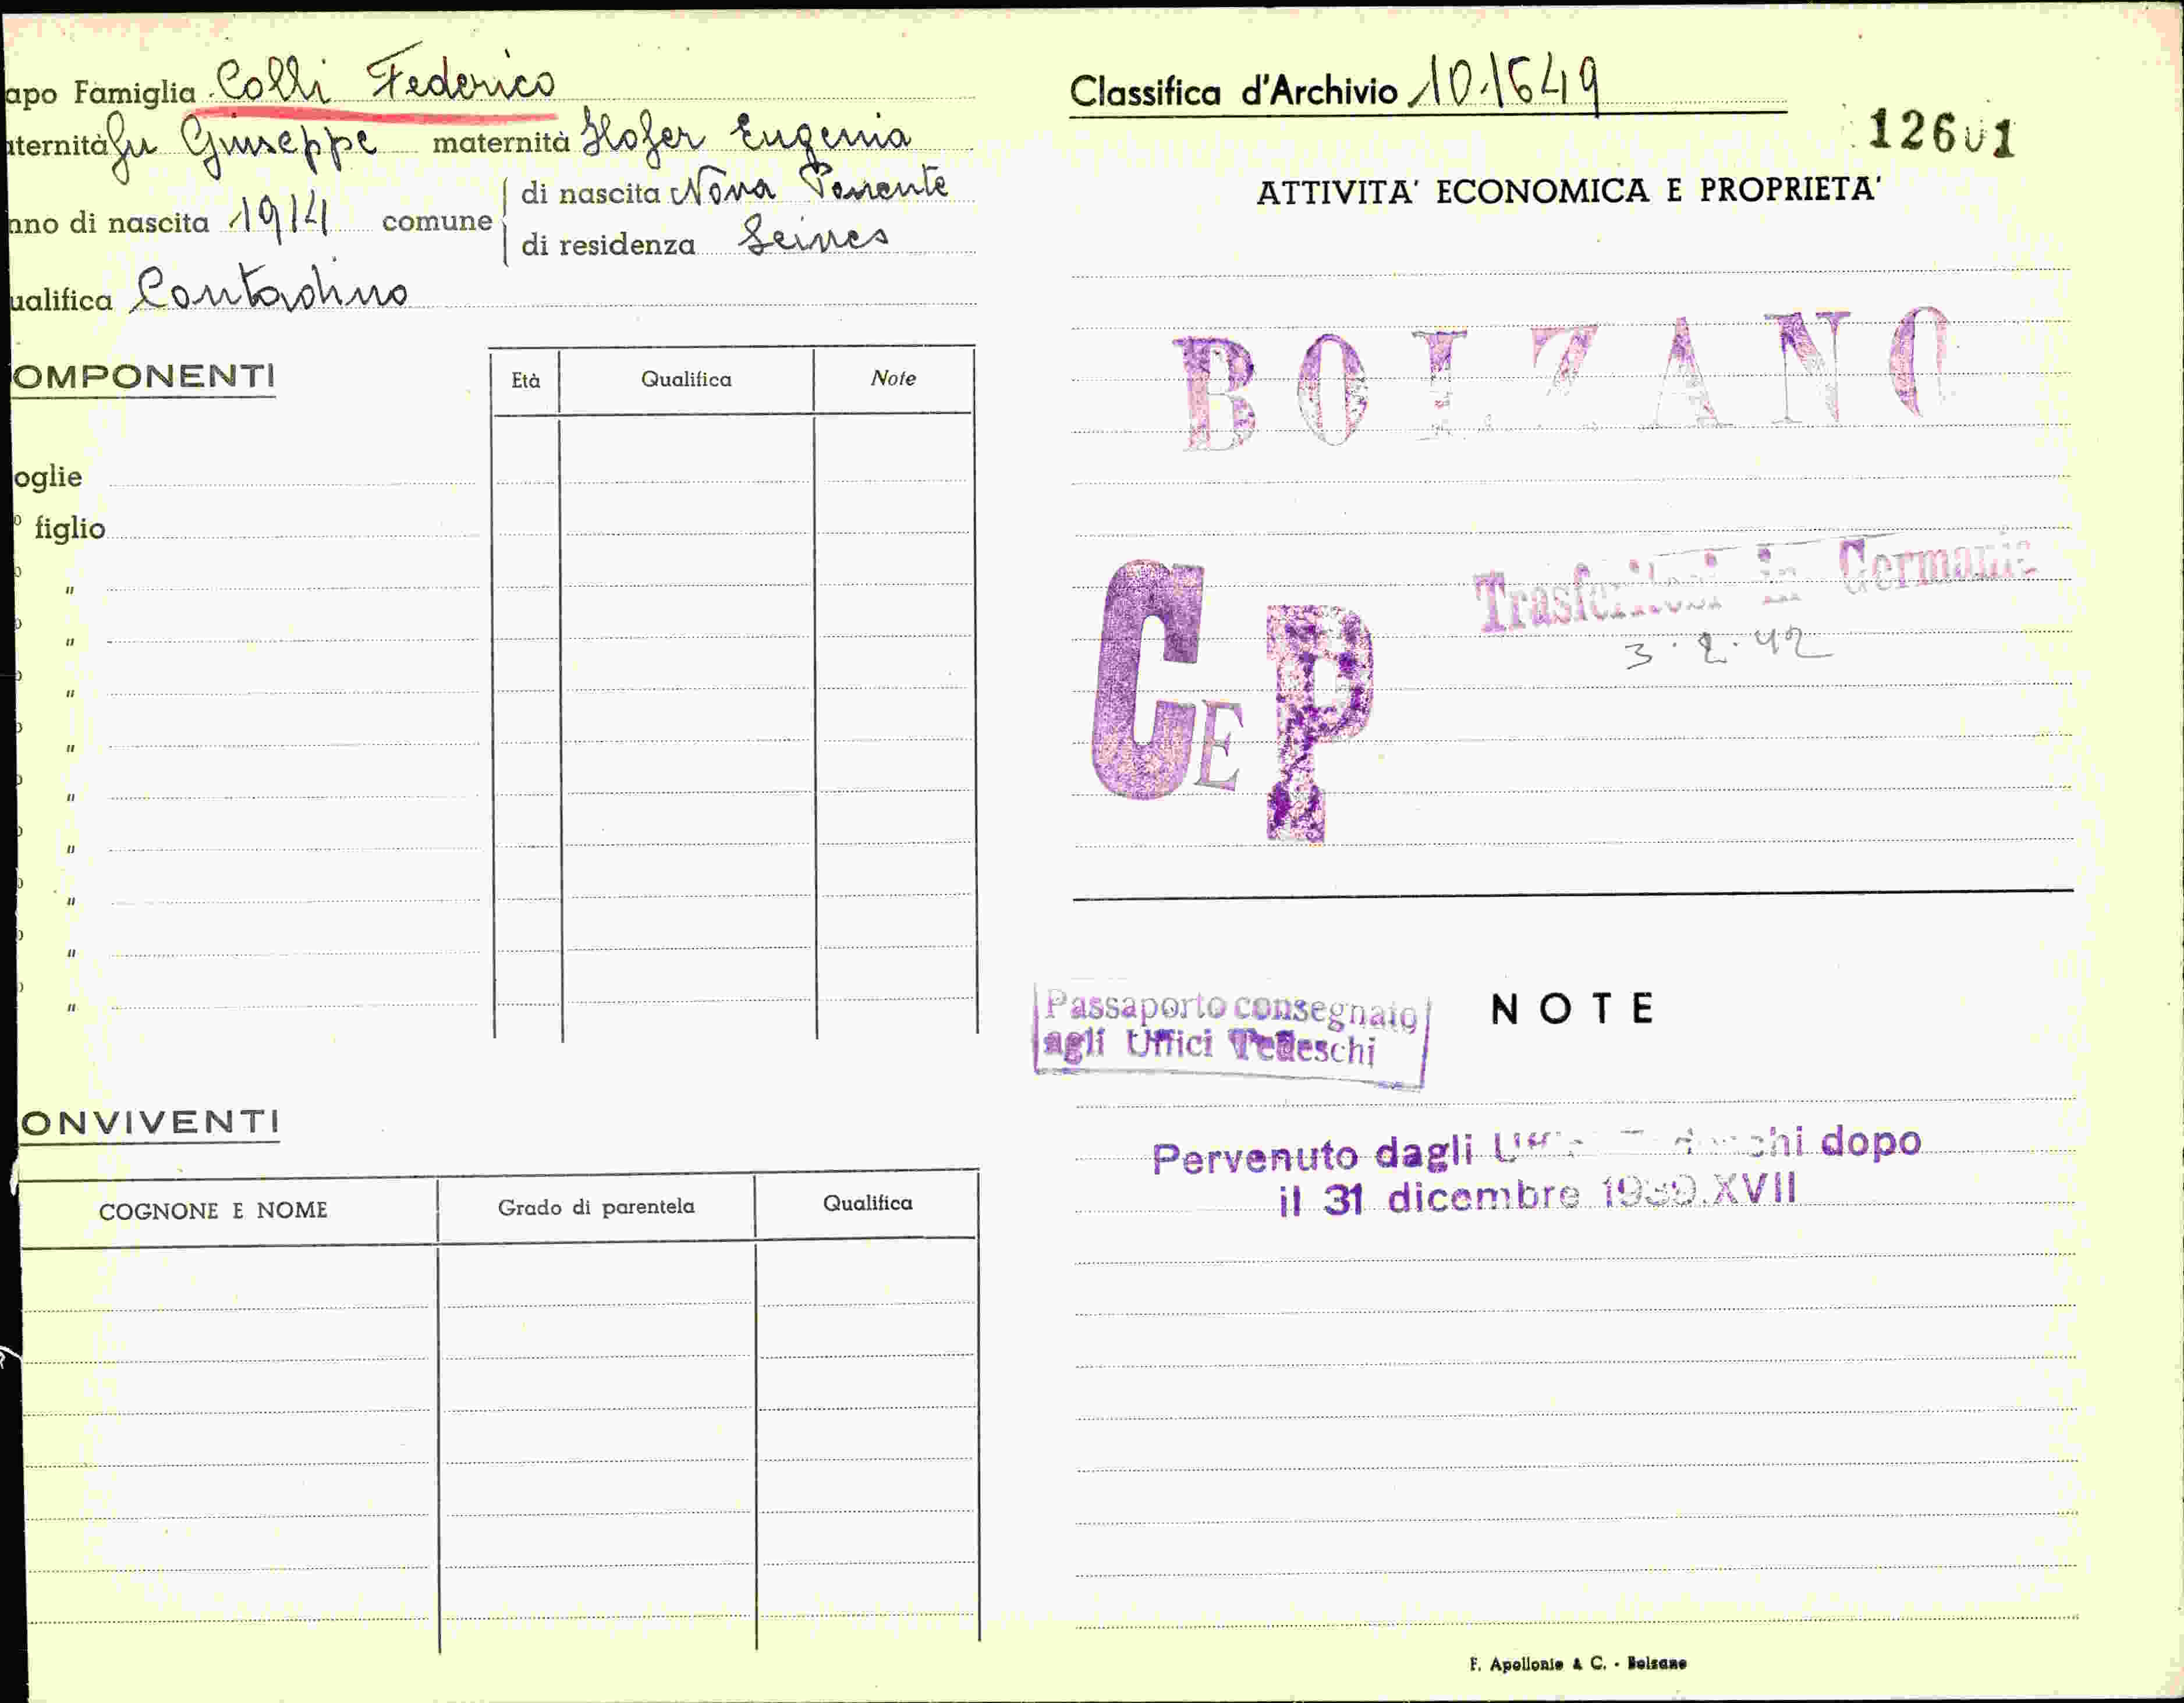 apo Famiglia Colli Federico
aternità fu Giuseppe maternità Hofer Eugenia
nno di nascita 1914 comune
di nascita Nova Ponente
di residenza
ualifica Contadino
OMPONENTI
Età Qualifica Note
oglie
º figlio
"
"
"
"
"
"
"
"
"
ONVIVENTI
COGNONE E NOME Grado di parentela Qualifica
Classifica d'Archivio 10.1649
12601
ATTIVITA' ECONOMICA E PROPRIETA'
BOLZANO
CEP
Trasferitosi in Germania
3.2.42
Passaporto consegnato
agli Uffici Tedeschi
NOTE
Pervenuto dagli Uffici Tedeschi dopo
il 31 dicembre 1939.XVII
F. Apollonio & C. - Bolzano